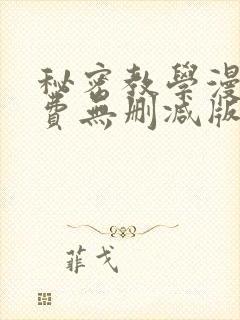 秘密教學漫
費無刪減版
菲戈